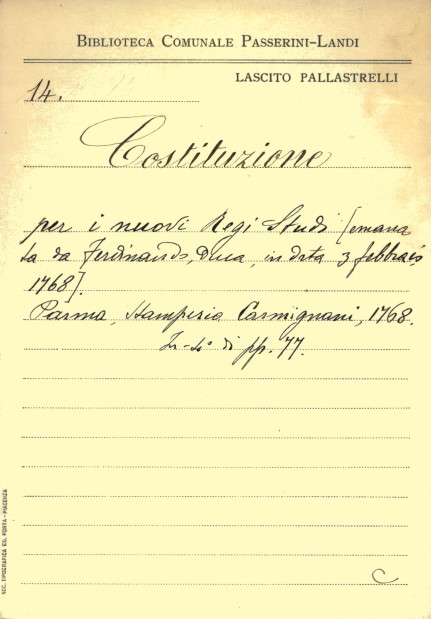 BIBLIOTECA COMUNALE PASSERINI-LANDI
LASCITO PALLASTRELLI
14.
Costituzione
per i nuovi Regi Studi [emana
ta da Ferdinando, Duca, in data 3 febbraio
1768].
Parma, Stamperia Carmignani, 1768.
In-4° di pp. 77.
C
SOC. TIPOGRAFICA ED. PORTA - PIACENZA